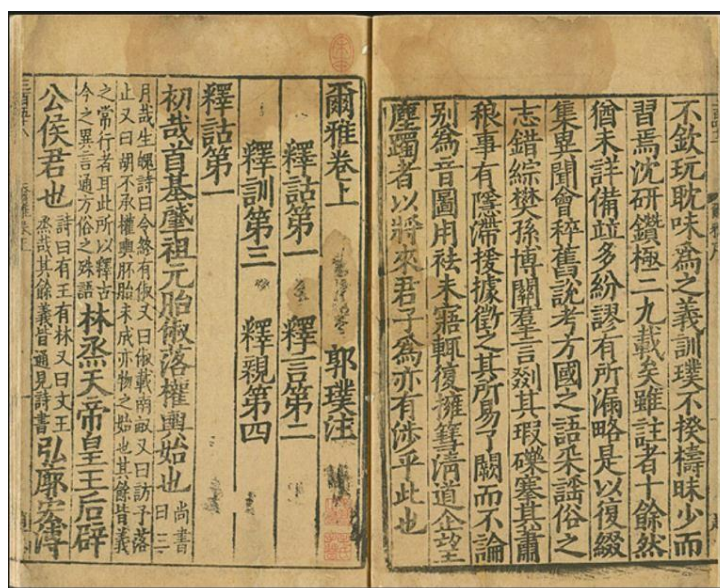 不欽玩耽味爲之義訓璞不揆檮昧少而
習焉沈研鑽極二九載矣雖註者十餘然
猶未詳備竝多紛謬有所漏略是以復綴
集異聞會稡舊說考方國之語采謠俗之
志錯綜樊孫博關羣言剟其瑕礫搴其蕭
稂事有隱滯援據徵之其所易了闕而不論
别爲音圖用袪未寤輒復擁篲清道企望
塵躅者以將來君子爲亦有涉乎此也
爾雅卷上 郭璞注
釋詁第一 釋言第二
釋訓第三 釋親第四
釋詁第一
初哉首基肈祖元胎俶落權輿始也 尚書曰三
月哉生魄詩曰令終有俶又曰俶載南畝又曰訪予落
止又曰胡不承權輿胚胎未成亦物之始也其餘皆義
之常行者耳此所以釋古
今之異言通方俗之殊語 林烝天帝皇王后辟
公侯君也 詩曰有壬有林又曰文王
烝哉其餘義皆通見詩書 弘廓宏溥